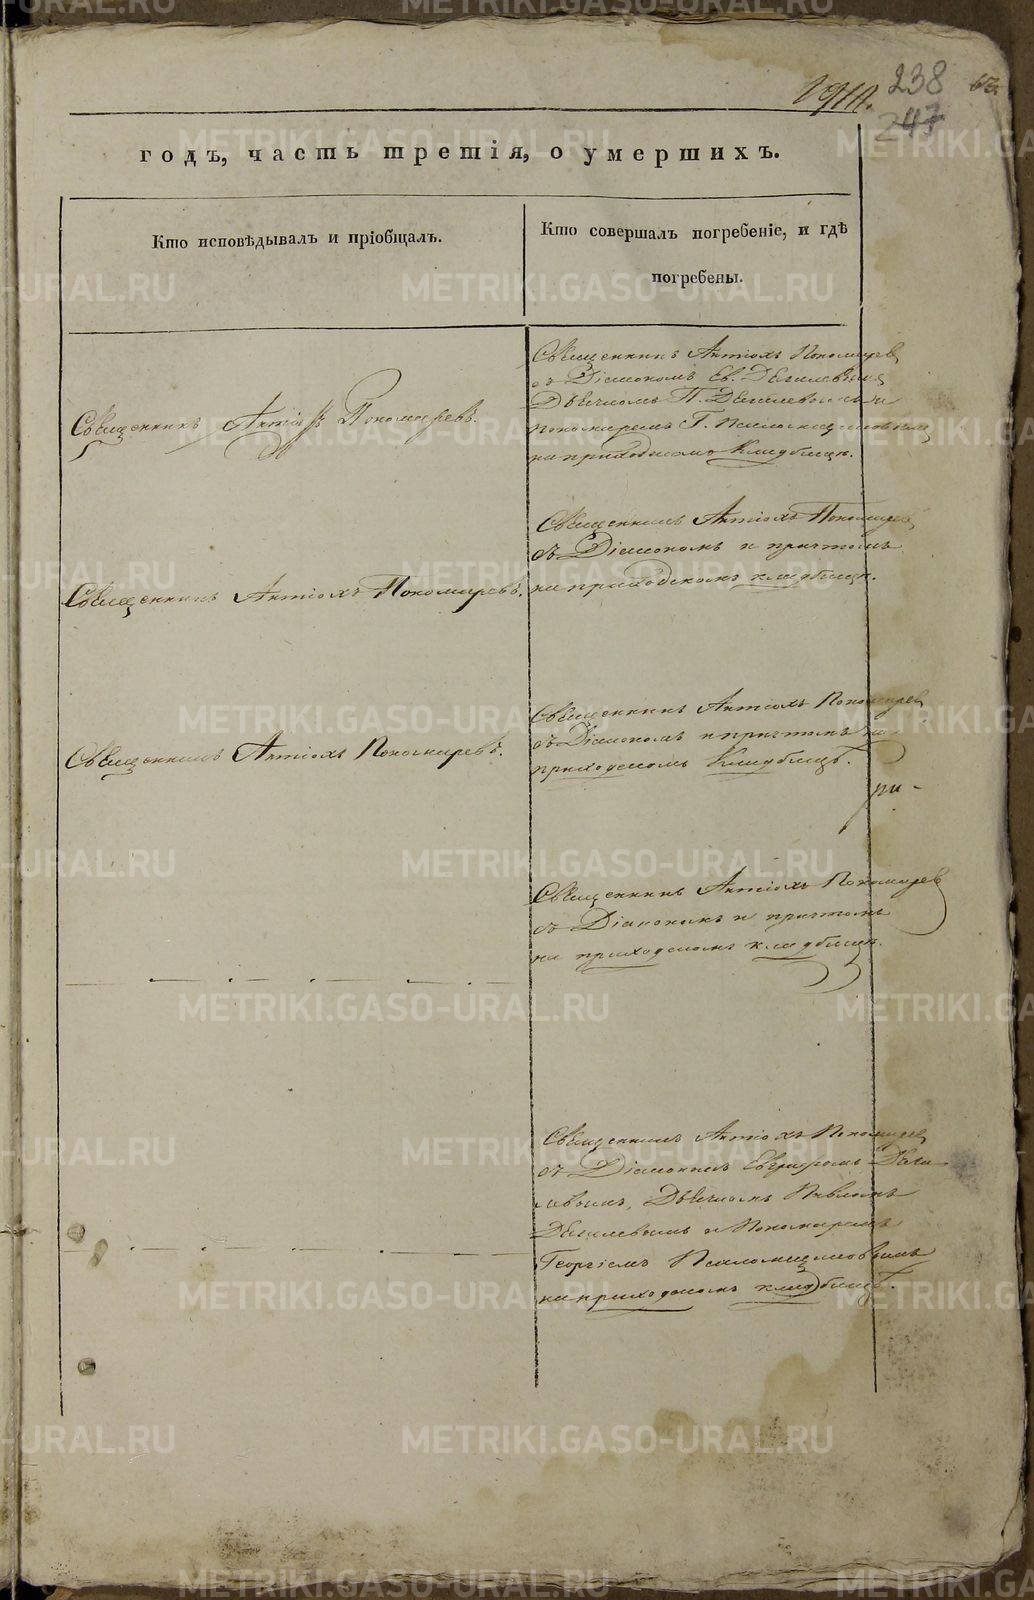 238
247
годъ, часть третія, о умершихъ.
Кто исповѣдывалъ и пріобщалъ.
Кто совершалъ погребеніе, и гдѣ
погребены.
Священникъ Антіохъ Пономарев
съ Діакономъ Ев.
Дьячкомъ П. и
Пономаремъ Г.
на приходскомъ кладбищѣ.
Священникъ Антіохъ Пономаревъ.
Священникъ Антіохъ Пономарев
съ Діакономъ и причтомъ
на приходскомъ кладбищѣ.
Священникъ Антіохъ Пономаревъ.
Священникъ Антіохъ Пономарев
съ Діакономъ и причтомъ на
приходскомъ кладбищѣ.
Священникъ Антіохъ Пономаревъ.
Священникъ Антіохъ Пономарев
съ Діакономъ и причтомъ
на приходскомъ кладбищѣ.
Священникъ Антіохъ Пономарев
съ Діакономъ
Дьячкомъ Павломъ
и Пономаремъ
Георгіемъ
на приходскомъ кладбищѣ.
METRIKI.GASO-URAL.RU